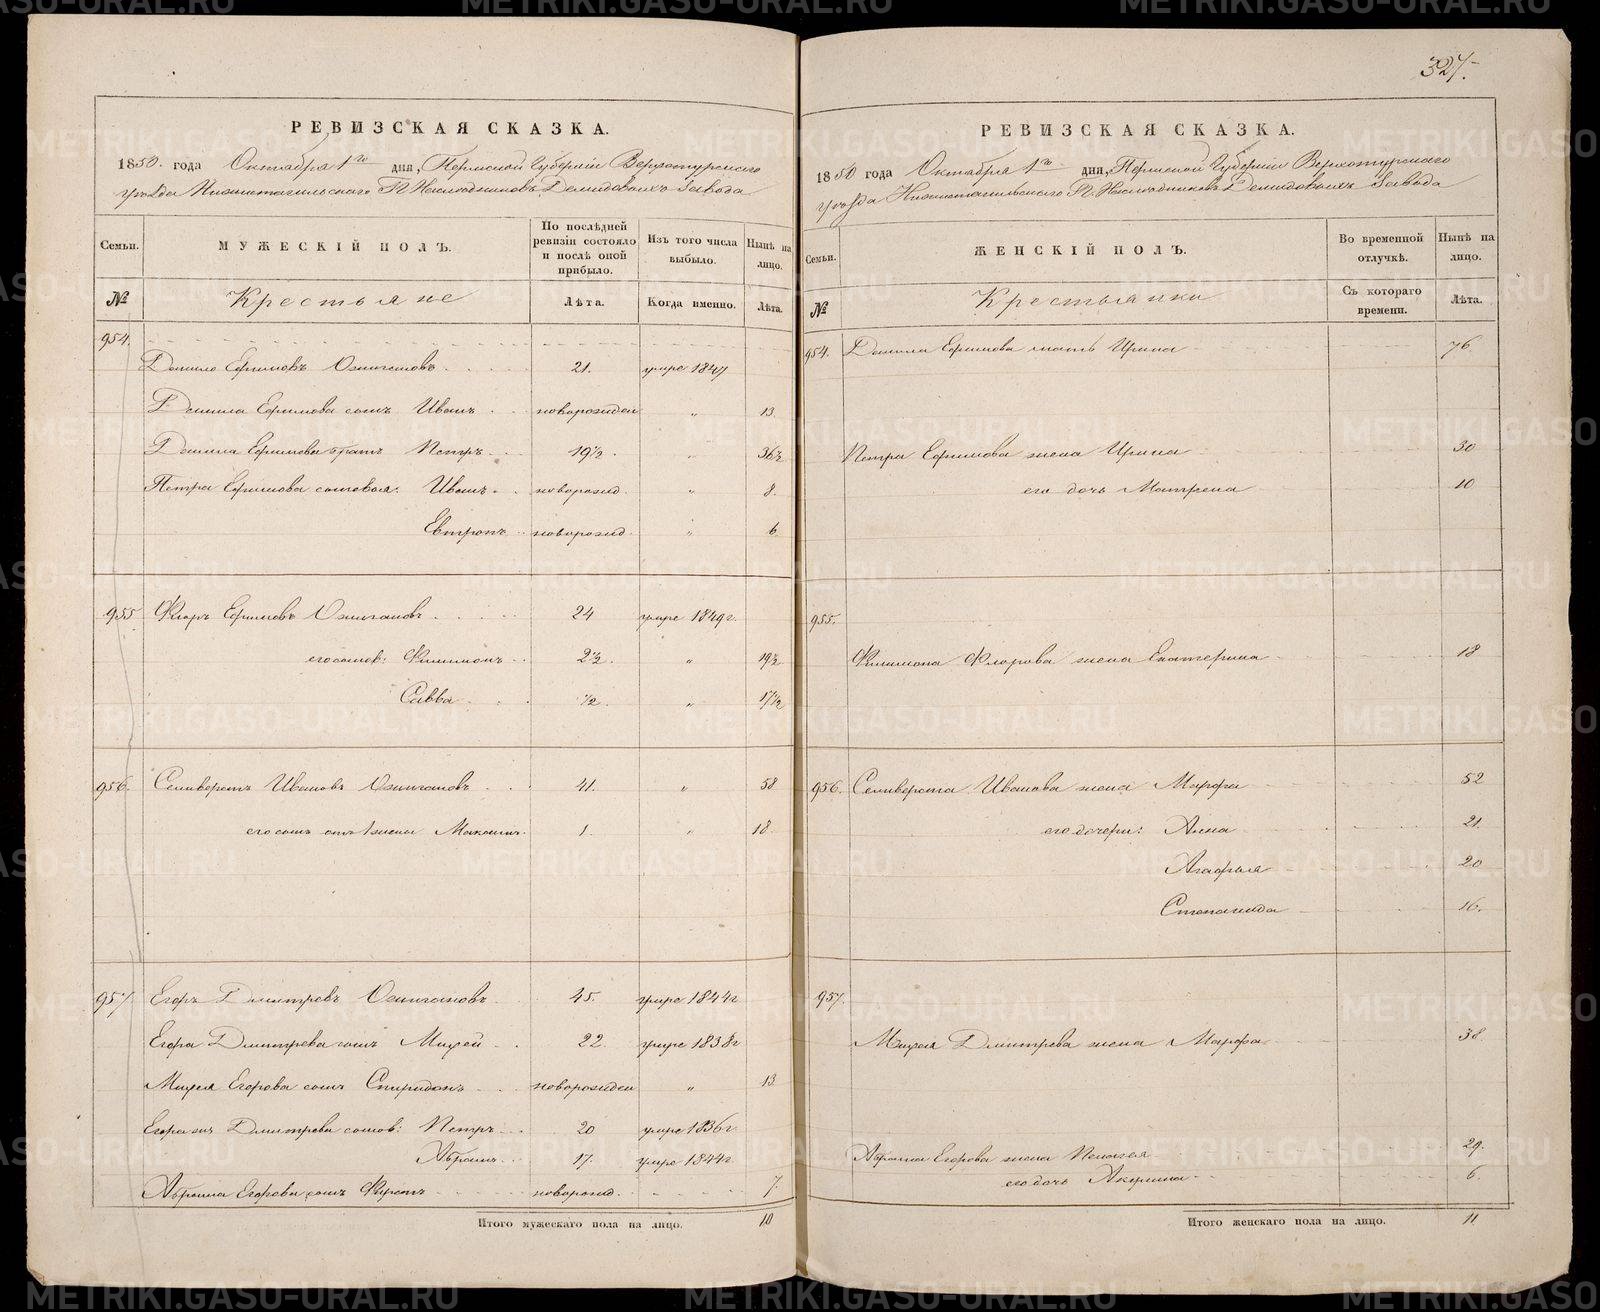 327.
РЕВИЗСКАЯ СКАЗКА.
1850. года Октября 1го дня, Пермской Губерніи Верхотурскаго
уѣзда Нижнетагильскаго Гг. Наслѣдниковъ Демидовыхъ Завода
Семьи. МУЖЕСКІЙ ПОЛЪ. По послѣдней ревизіи состояло и послѣ оной прибыло. Изъ того числа выбыло. Нынѣ на лицо.
№ Крестьяне Лѣта. Когда именно. Лѣта.
954.
Данило Ефимовъ Ожигановъ 21. умре 1847
Данила Ефимова сынъ Иванъ новорожден „ 13
Данила Ефимова братъ Петръ 19½ „ 36½
Петра Ефимова сыновья: Иванъ новорожд. „ 8.
Евтропъ новорожд. „ 6
955 Флоръ Ефимовъ Ожигановъ 24 умре 1849г.
его сынов: Филимонъ 2½ „ 19½
Савва ½ „ 17½
956. Селиверстъ Ивановъ Ожигановъ 41. „ 58
его сынъ отъ 1 жены Макаръ 1. „ 18
957. Егоръ Дмитревъ Ожигановъ 45. умре 1844г
Егора Дмитрева сынъ Михей 22 умре 1838г
Михея Егорова сынъ Спиридонъ новорожден „ 13
Егора жъ Дмитрева сынов: Петръ 20 умре 1836г
Абрамъ 17. умре 1844г.
Абрама Егорова сынъ Фирсъ новорожд. 7.
Итого мужескаго пола на лицо. 10
РЕВИЗСКАЯ СКАЗКА.
1850 года Октября 1го дня, Пермской Губерніи Верхотурскаго
уѣзда Нижнетагильскаго Гг. Наслѣдниковъ Демидовыхъ Завода
Семьи. ЖЕНСКІЙ ПОЛЪ. Во временной отлучкѣ. Нынѣ на лицо.
№ Крестьянки Съ котораго времени. Лѣта.
954. Данила Ефимова мать Ирина 76
Петра Ефимова жена Ирина 30
его дочь Матрена 10
955.
Филимона Флорова жена Екатерина 18
956. Селиверста Иванова жена Марфа 52
его дочери: Анна 21.
Агафья 20
Степанида 16.
957.
Михея Дмитрева жена Марфа 38.
Абрама Егорова жена Пелагея 29.
его дочь Акулина 6.
Итого женскаго пола на лицо. 11
METRIKI.GASO-URAL.RU